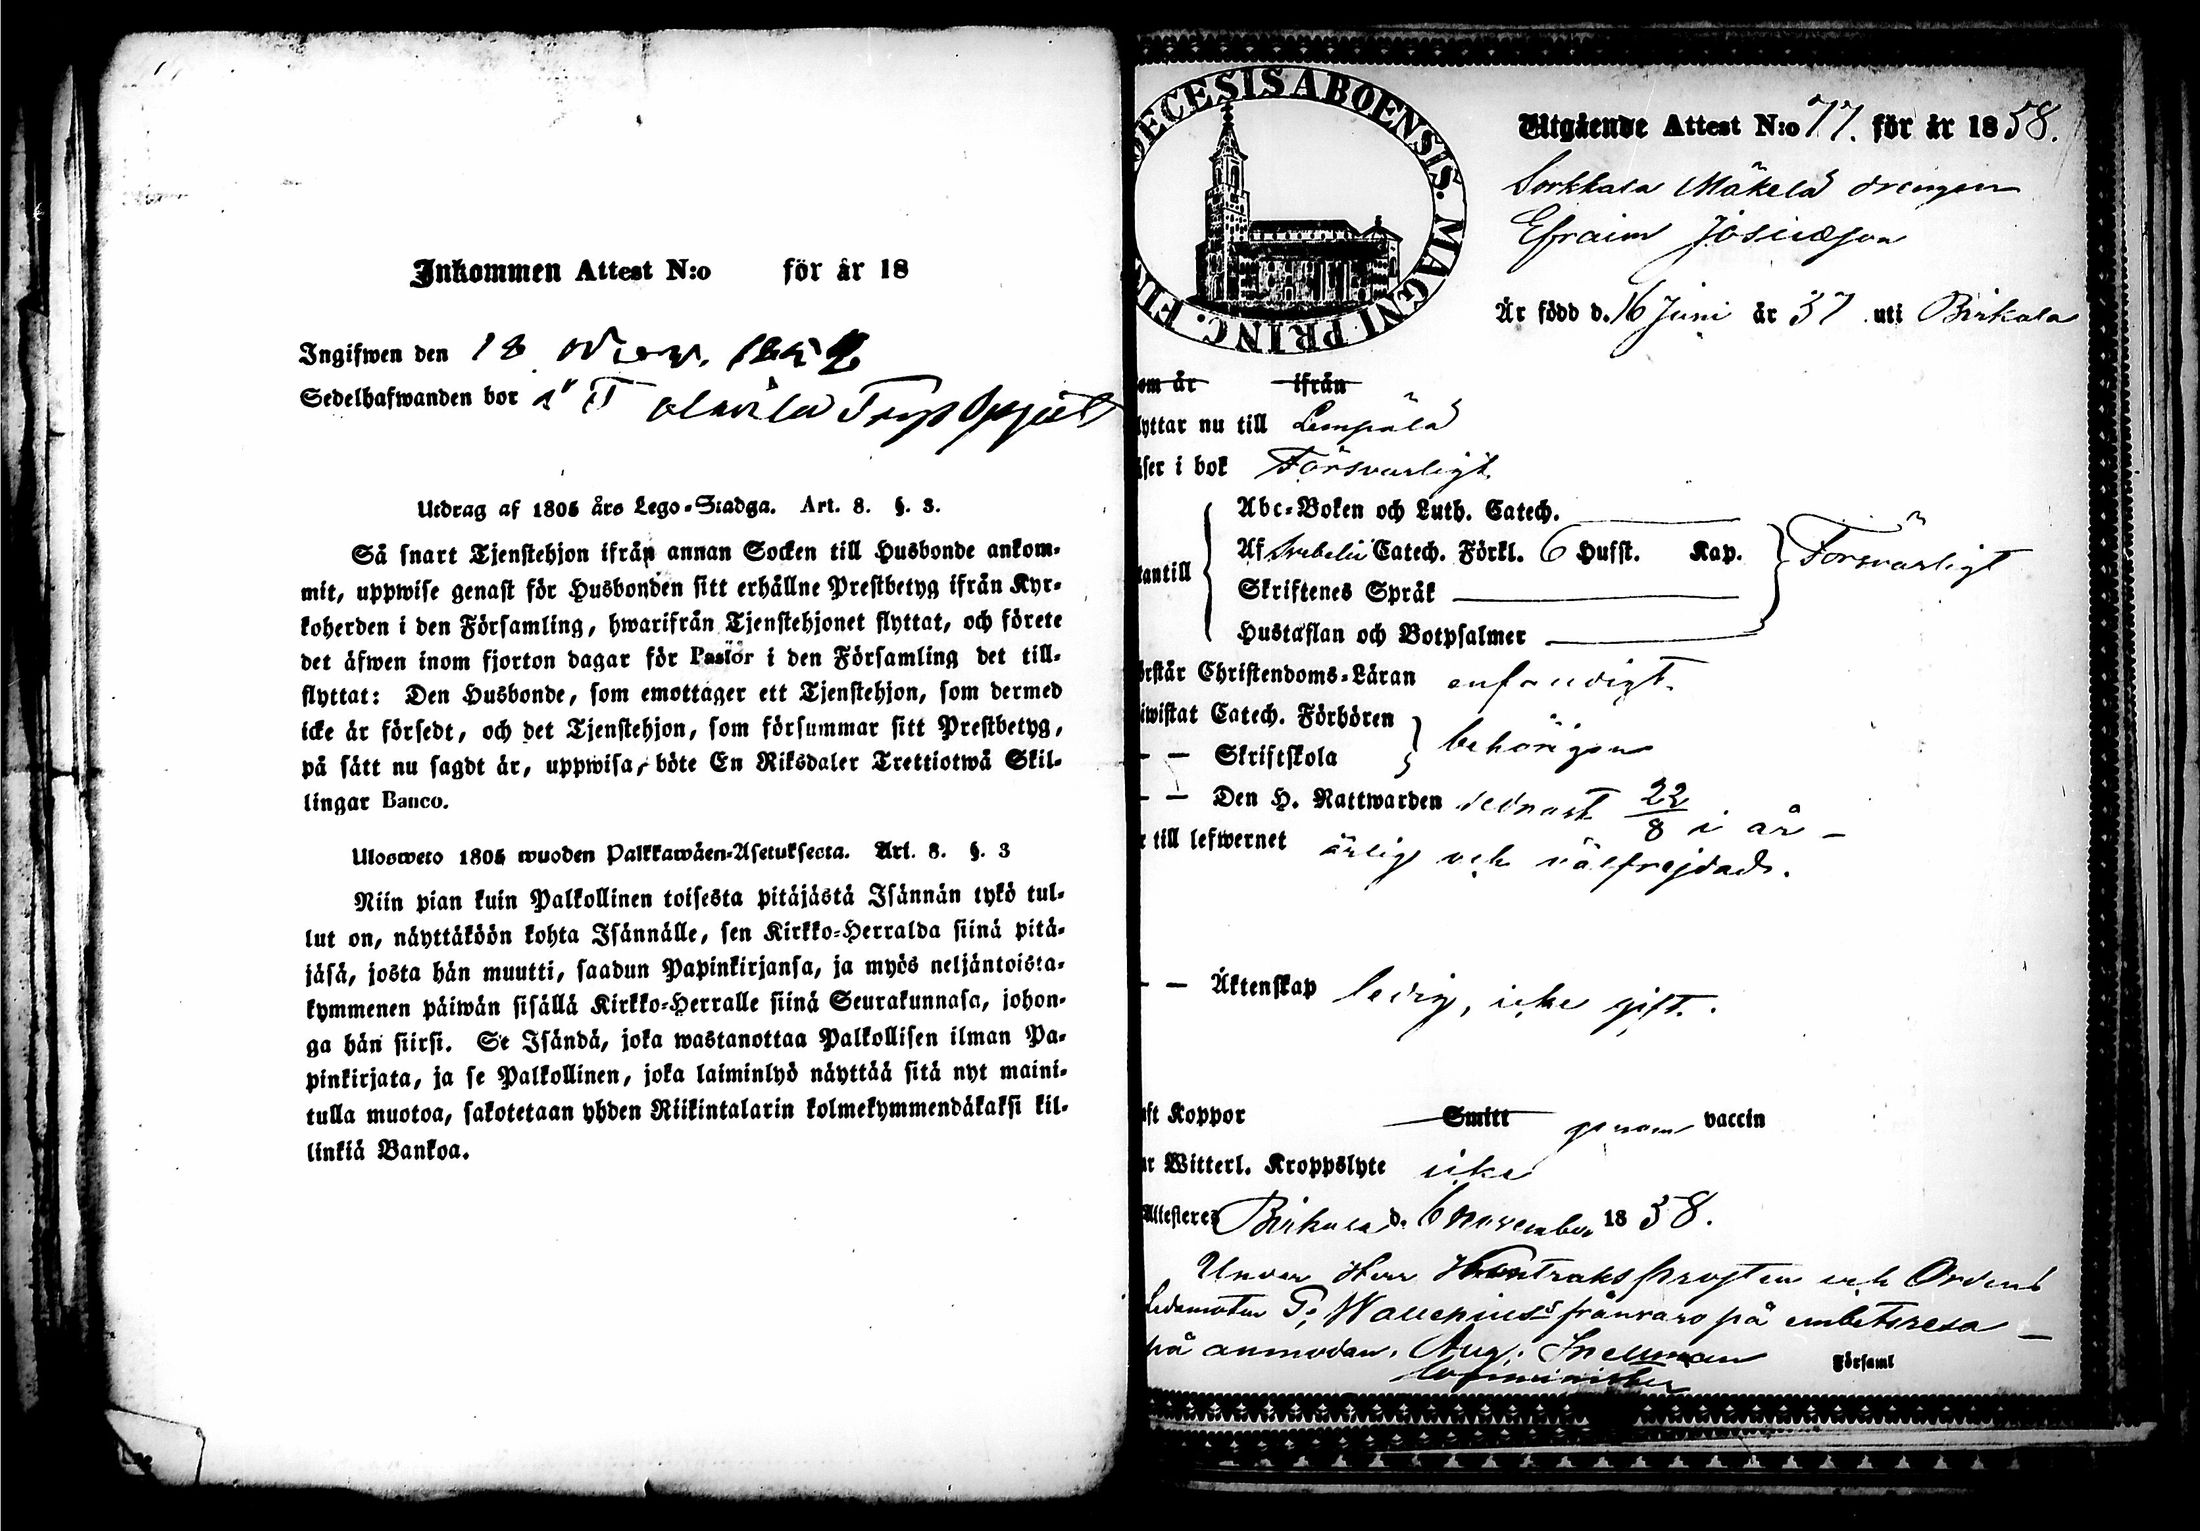 Inkommen Attest N:o för år 18
Ingifwen den 18 Nov. 185
Sedelhafwanden bor i
Utdrag af 1805 års Lego-Stadga. Art. 8. §. 3.
Så snart Tjenstehjon ifrån annan Socken till Husbonde ankom-
mit, uppwise genast för Husbonden sitt erhållne Prestbetyg ifrån Kyr-
koherden i den Församling, hwarifrån Tjenstehjonet flyttat, och förete
det äfwen inom fjorton dagar för Pastor i den Församling det till-
flyttat: Den Husbonde, som emottager ett Tjenstehjon, som dermed
icke är försedt, och det Tjenstehjon, som försummar sitt Prestbetyg,
på sätt nu sagdt är, uppwisa, böte En Riksdaler Trettiotwå Skil-
lingar Banco.
Ulosweto 1805 wuoden Palkkawäen-Asetuksesta. Art. 8. §. 3
Niin pian kuin Palkollinen toisesta pitäjästä Isännän tykö tul-
lut on, näyttäköön kohta Isännälle, sen Kirkko-Herralda siinä pitä-
jäsä, josta hän muutti, saadun Papinkirjansa, ja myös neljäntoista-
kymmenen päiwän sisällä Kirkko-Herralle siinä Seurakunnasa, johon-
ga hän siirsi. Se Isändä, joka wastanottaa Palkollisen ilman Pa-
pinkirjata, ja se Palkollinen, joka laiminlyö näyttää sitä nyt maini-
tulla muotoa, sakotetaan yhden Riikintalarin kolmekymmendäkaksi kil-
linkiä Bankoa.
ECESIS ABOENSIS. MAGNI PRINC. FIN
Utgående Attest N:o 77. för år 1858.
Sorkkala Mäkelä drengen
Efraim Josuæson
Är född d. 16 Juni år 37 uti Birkala
om år ifrån
lyttar nu till Lempälä
äser i bok Försvarligt
Abc-Boken och Luth. Catech.
Af Svebelii Catech. Förkl. 6 Hufst. Kap. Försvarligt
tantill
Skriftenes Språk
Hustaflan och Botpsalmer
örstår Christendoms-Läran enfaldigt.
iwistat Catech. Förhören
behörigen
— — Skriftskola
— — Den H. Nattwarden sednast 22/8 i år —
r till lefwernet ärlig och välfrejdad.
— — Äktenskap ledig, icke gift.
ft Koppor Smitt genom vaccin
ar Witterl. Kroppslyte icke
Attesteres Birkala d. 6 November 1858.
Under Herr Kontraktsprosten och Ordens
Ledamoten frånvaro på embetsresa —
på anmodan. Aug. Snellman
Comminister Församl